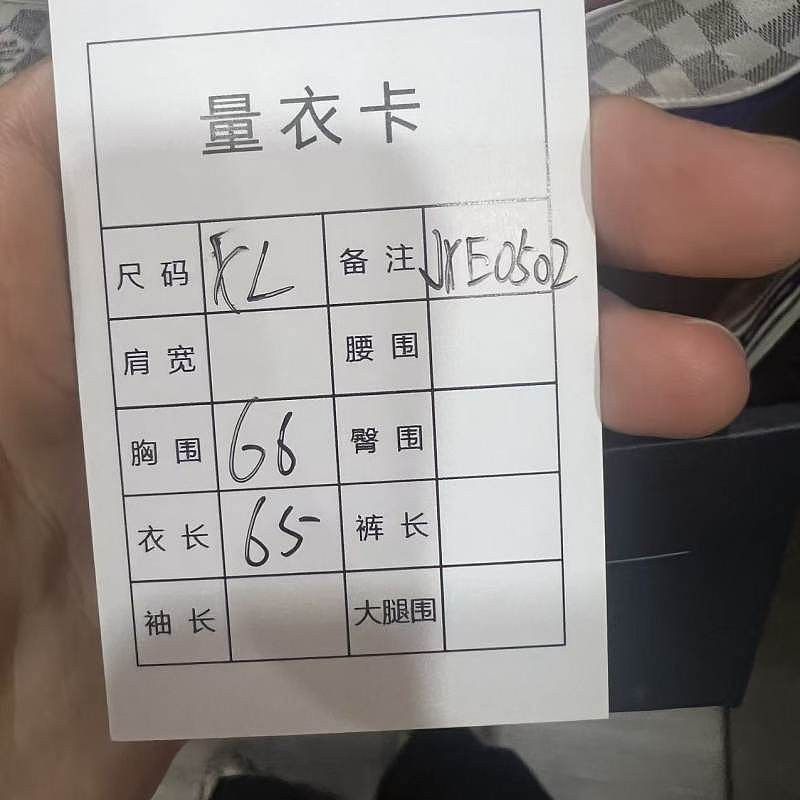 量衣卡
尺码 XL 备注 JXE0502
肩宽 腰围
胸围 66 臀围
衣长 65 裤长
袖长 大腿围